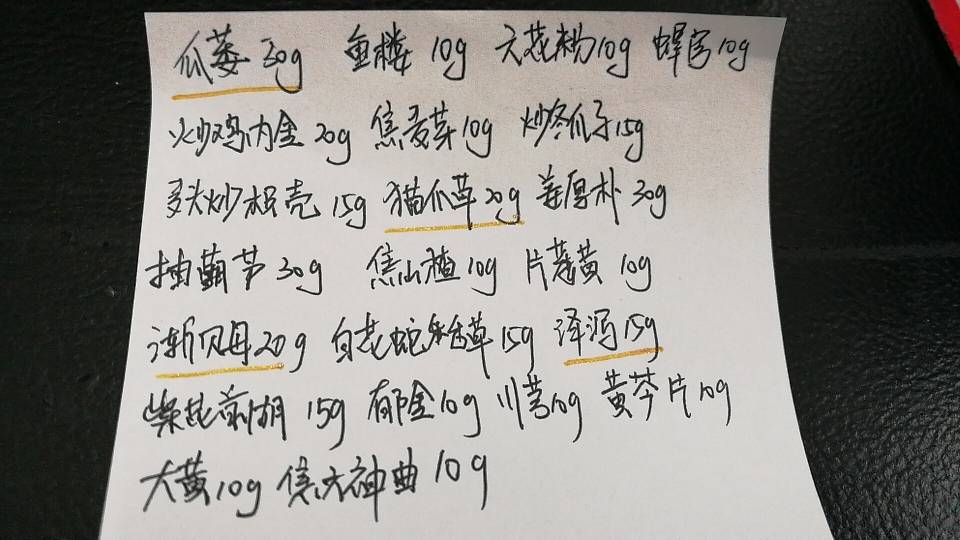 瓜蒌 30g 重楼 10g 天花粉10g 蜂房10g
火炒鸡内金 20g 焦麦芽10g 炒冬瓜子15g
麸炒枳壳 15g 猫爪草 20g 姜厚朴 30g
抽葫芦 30g 焦山楂 10g 片姜黄 10g
浙贝母 20g 白花蛇舌草 15g 泽泻 15g
紫花前胡 15g 郁金10g 川芎10g 黄芩片10g
大黄10g 焦六神曲 10g